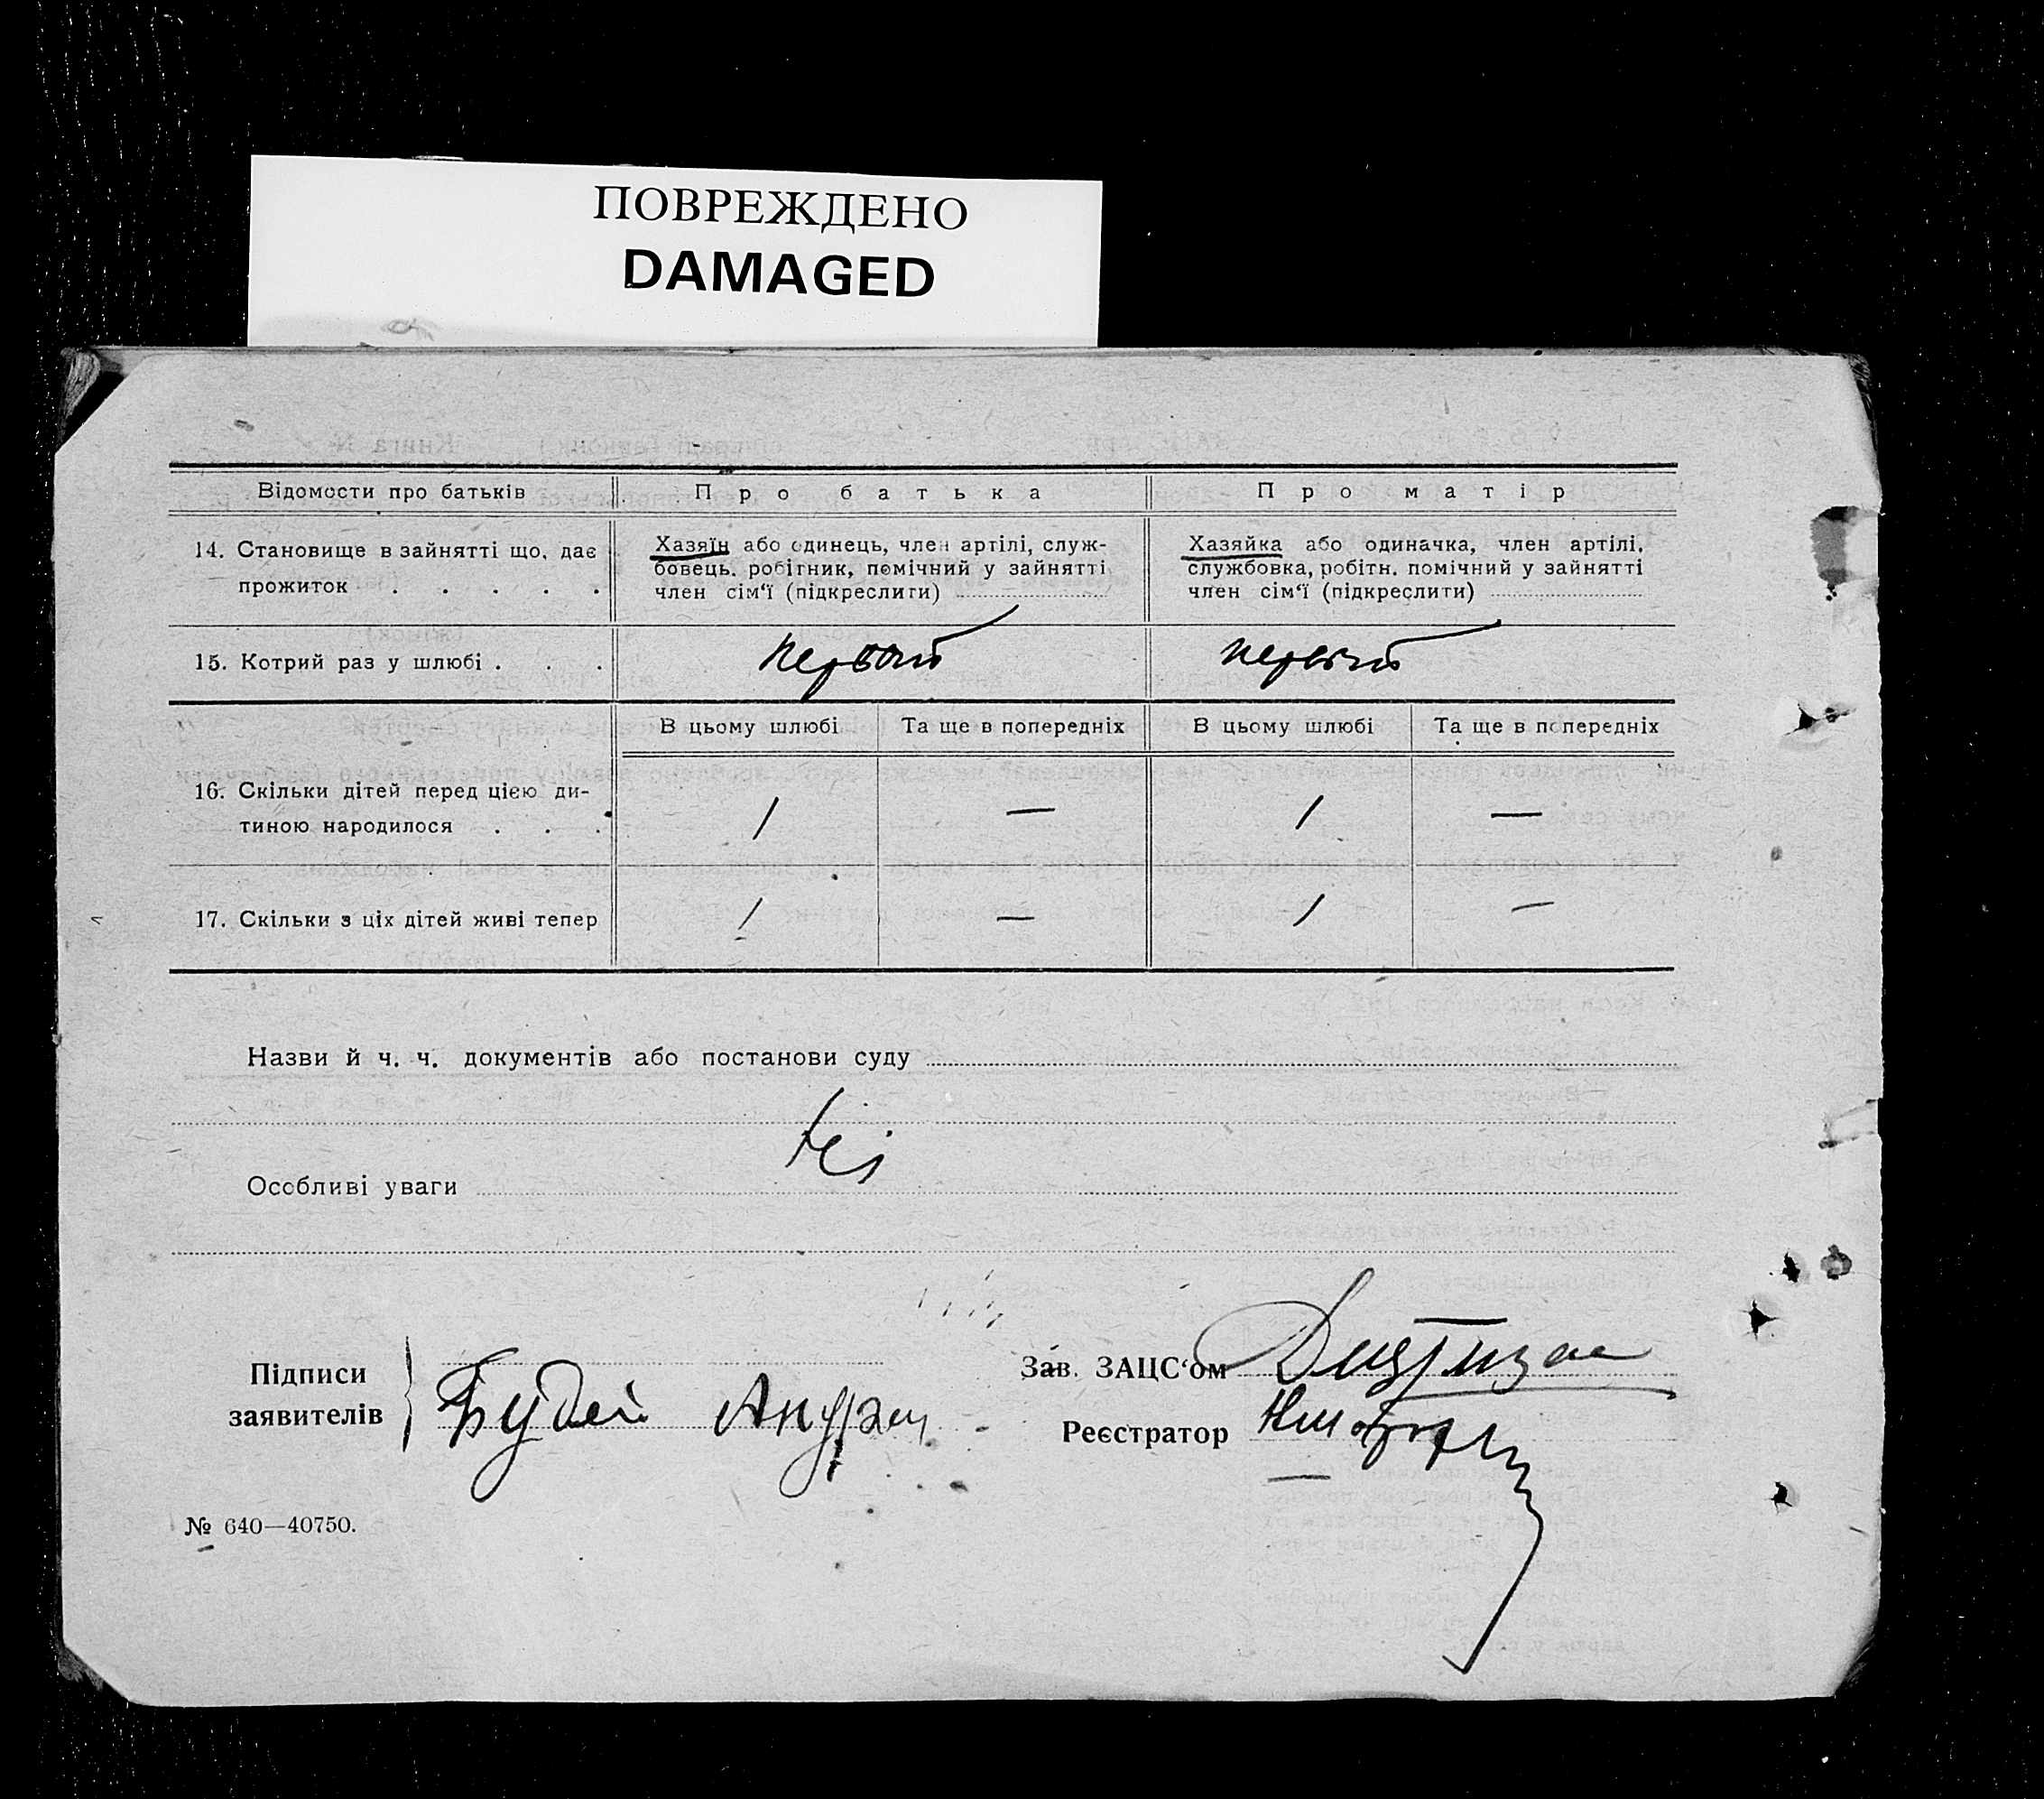 ПОВРЕЖДЕНО
DAMAGED
Відомости про батьків
Про батька
Про матір
14. Становище в зайнятті що, дає
прожиток . . . . .
Хазяїн або одинець, член артілі, служ-
бовець, робітник, помічний у зайнятті
член сім‘ї (підкреслити)
Хазяйка або одиначка, член артілі,
службовка, робітн. помічний у зайнятті
член сім‘ї (підкреслити)
15. Котрий раз у шлюбі . . .
первый
первый
В цьому шлюбі
Та ще в попередніх
В цьому шлюбі
Та ще в попередніх
16. Скільки дітей перед цією ди-
тиною народилося . . .
1
—
1
—
17. Скільки з ціх дітей живі тепер
1
—
1
—
Назви й ч. ч. документів або постанови суду
Особливі уваги
Підписи
заявителів
Будей Андрей
Зав. ЗАЦС‘ом
Реєстратор
№ 640—40750.